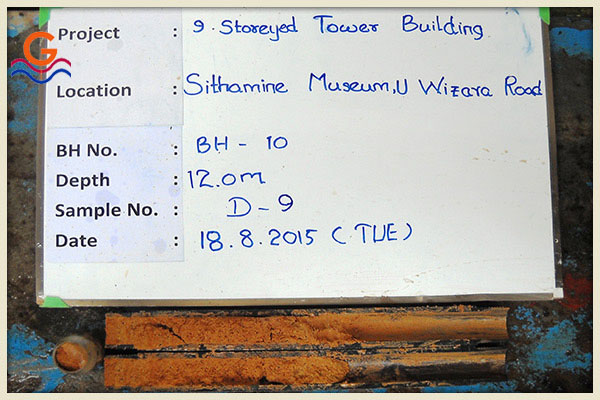 Project : 9. Storeyed Tower Building
Location : Sithamine Museum, U Wizara Road
BH No. : BH - 10
Depth : 12.0m
Sample No. : D - 9
Date : 18.8.2015 (TUE)
G